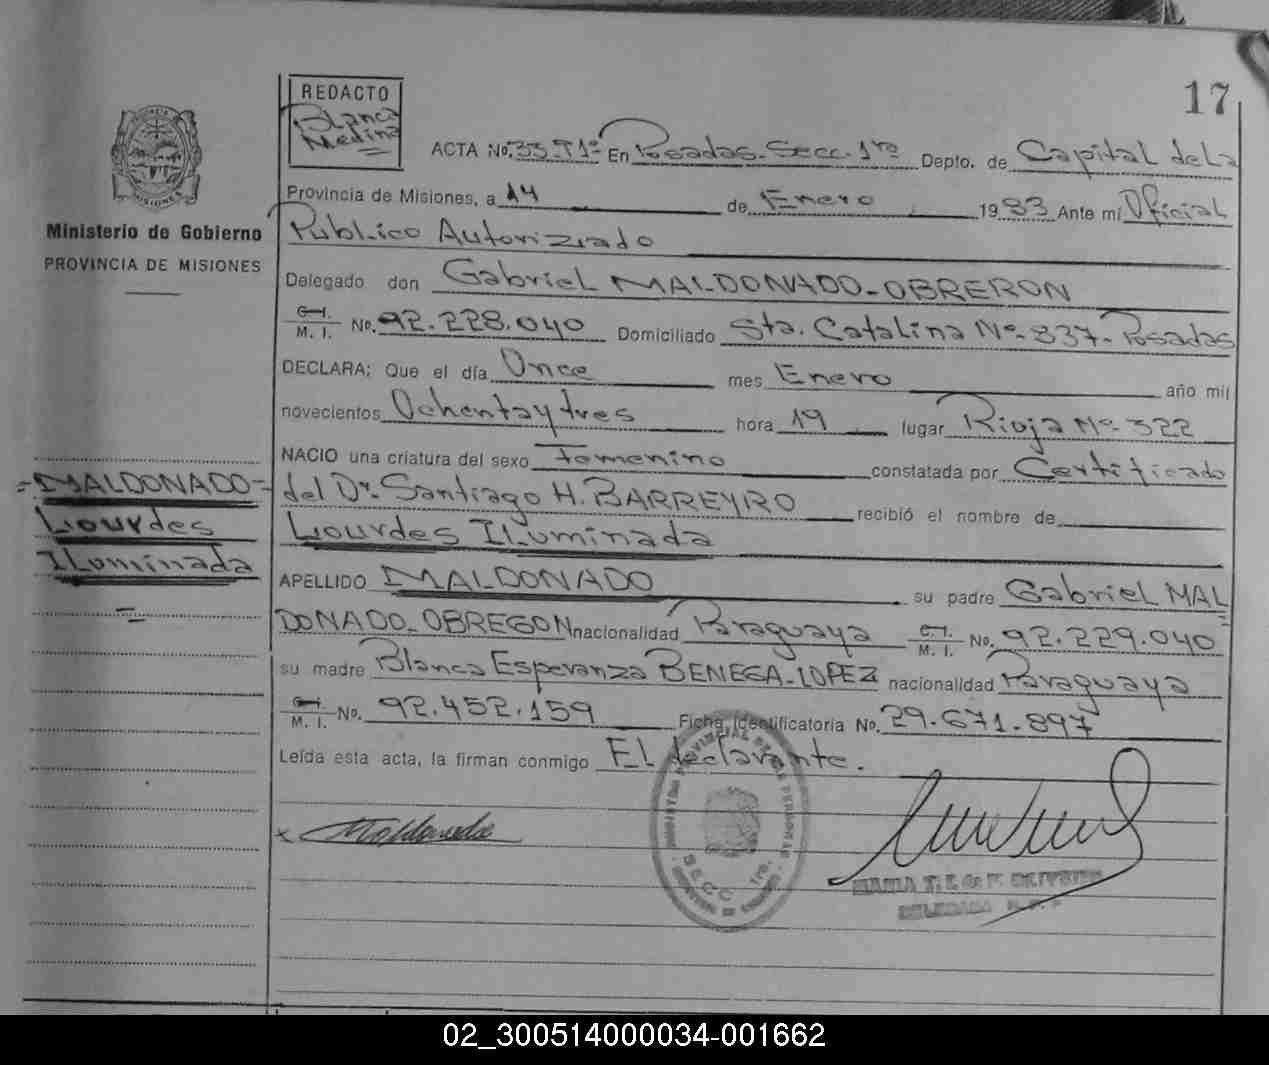 17
REDACTO
Blanca
Medina
ACTA No. 33 T1º En Posadas-Secc. 1ra Depto. de Capital de La
Provincia de Misiones, a 14 de Enero 1983 Ante mí Oficial
Público Autorizado
Delegado don Gabriel MALDONADO-OBRERON
C. I.
M. I. No. 92.228.040 Domiciliado Sta. Catalina Nº 837- Posadas
DECLARA: Que el día Once mes Enero año mil
novecientos Ochentaytres hora 19 lugar Rioja Nº 322
NACIO una criatura del sexo Femenino constatada por Certificado
del Dr. Santiago H. BARREYRO recibió el nombre de
Lourdes ILuminada
APELLIDO MALDONADO su padre Gabriel MAL
DONADO-OBREGON nacionalidad Paraguaya C. I.
M. I. No. 92.229.040
su madre Blanca Esperanza BENEGA-LOPEZ nacionalidad Paraguaya
C. I.
M. I. No. 92.452.159 Ficha Identificatoria No. 29.671.897
Leída esta acta, la firman conmigo El declarante.
x Maldonado
SECC 1ra.
Ministerio de Gobierno
PROVINCIA DE MISIONES
=MALDONADO=
Lourdes
ILuminada
02_300514000034-001662